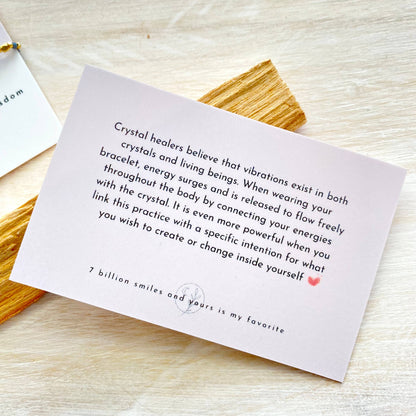 sdom
Crystal healers believe that vibrations exist in both
crystals and living beings. When wearing your
bracelet, energy surges and is released to flow freely
throughout the body by connecting your energies
with the crystal. It is even more powerful when you
link this practice with a specific intention for what
you wish to create or change inside yourself
7 billion smiles and yours is my favorite